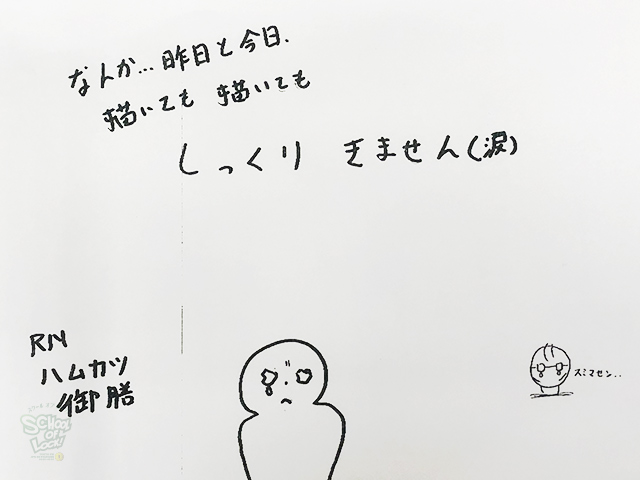 なんか…昨日と今日.
描いても 描いても
しっくり きません(涙)
RN
ハムカツ
御膳
スミマセン..
SCHOOL
OF
LOCK!